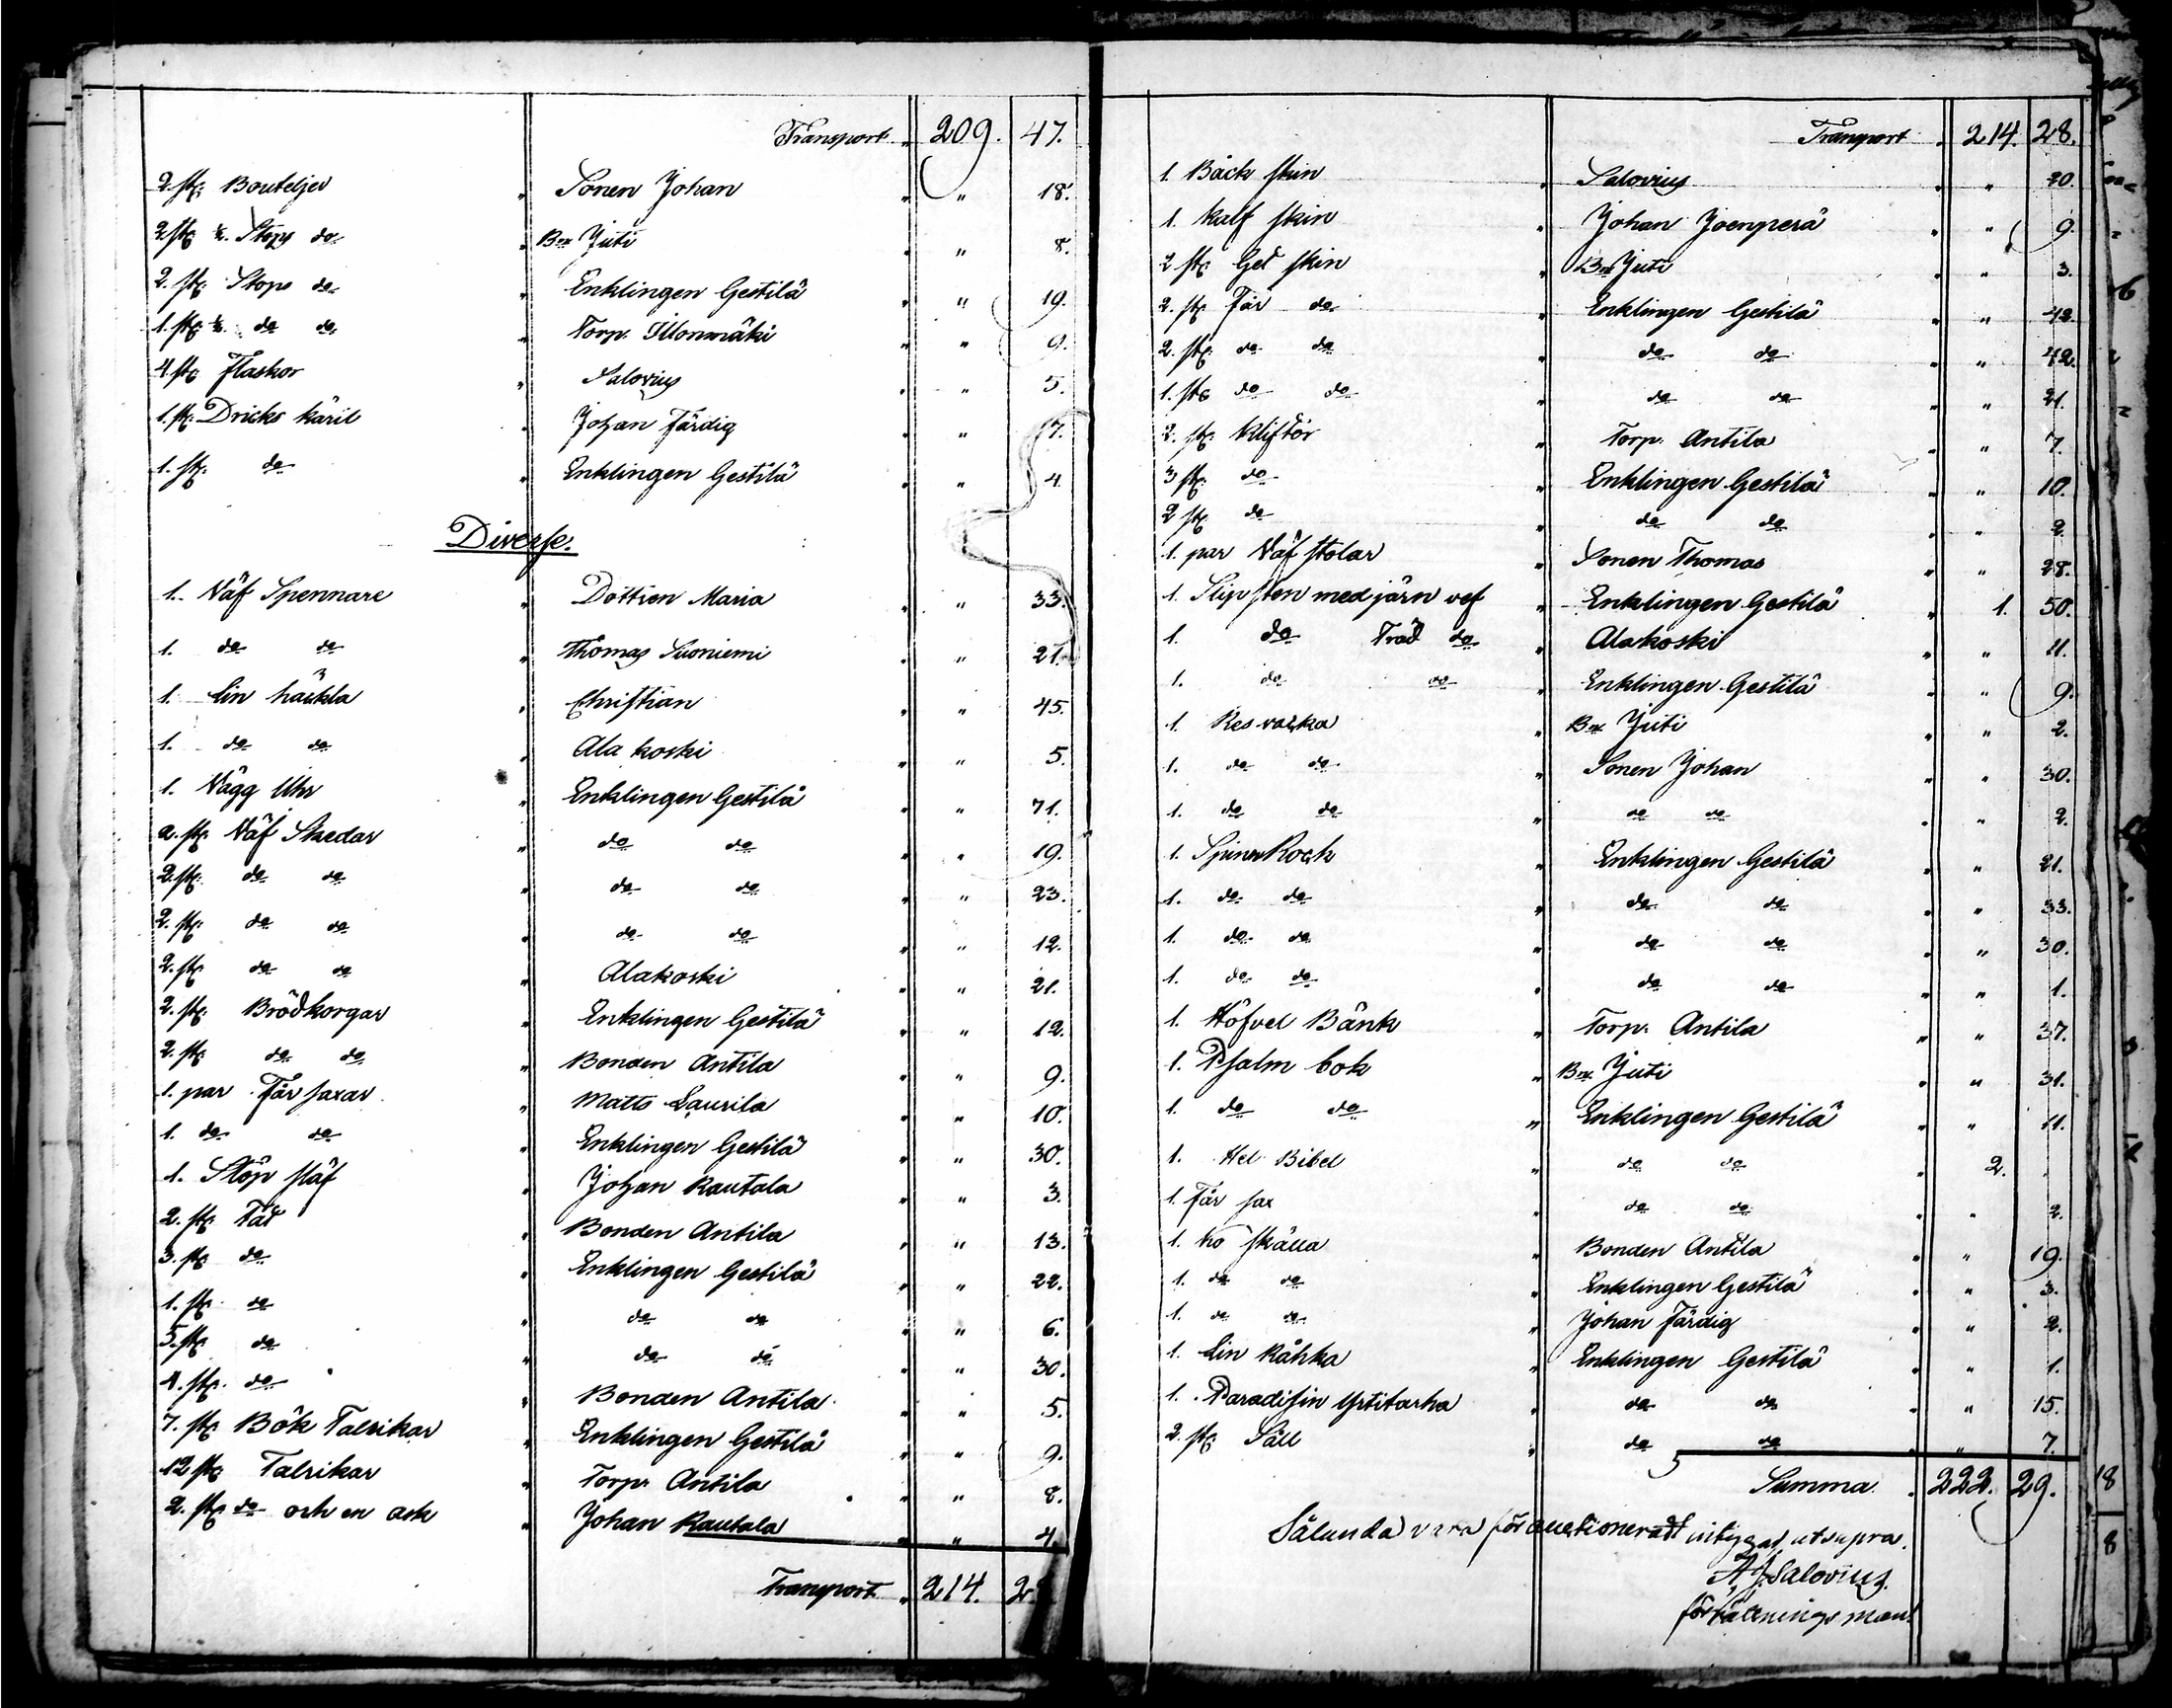 Transport „ 209. 47.
2 st: Bouteljer „ Sonen Johan „ „ 18.
2 st: ½. Stops do „ Bn Juti „ 8.
2. st: Stops do „ Enklingen Gestilä „ 19.
1. st: ½. do do „ Torp. Illonmäki „ „ 9.
4 st: Flaskor „ Salovius „ „ 5.
1. st: Dricks käril „ Johan Färdig „ „ 17.
1. st: do „ Enklingen Gestilä „ „ 4.
Diverse.
1. Väf Spennare „ Dottren Maria „ „ 33.
1. do do „ Thomas Suoniemi „ „ 21.
1. Lin häckla „ Christian „ „ 45.
1. do do „ Ala koski „ „ 5.
1. Vägg Uhr „ Enklingen Gestilä „ „ 71.
2. st: Väf Skedar „ do do „ „ 19.
2. st: do do „ do do „ „ 23.
2. st: do do „ do do „ „ 12.
2. st: do do „ Alakoski „ „ 21.
2. st: Brödkorgar „ Enklingen Gestilä „ „ 12.
2. st: do do „ Bonden Antila „ „ 9.
1. par Får saxar „ Matts Laurila „ „ 10.
1. do do „ Enklingen Gestilä „ „ 30.
1. Stöp stäf „ Johan Rautala „ „ 3.
2. st: Fat „ Bonden Antila „ „ 13.
3. st: do „ Enklingen Gestilä „ „ 22.
1. st: do „ do do „ „ 6.
5. st: do „ do do „ „ 30.
4. st: do „ Bonden Antila „ „ 5.
7. st: Bök Talrikar „ Enklingen Gestilä „ „ 9.
12 st: Talrikar „ Torp. Antila „ „ 8.
2. st: do och en ask „ Johan Rautala „ „ 4.
Transport „ 214. 2
Transport „ 214. 28.
1. Bäck skin „ Salovius „ „ 20.
1. Kalf skin „ Johan Joenperä „ „ 9.
2 st: Get skin „ Bn Juti „ „ 3.
2. st: Får do „ Enklingen Gestilä „ „ 42.
2. st: do do „ do do „ „ 42.
1. st: do do „ do do „ „ 21.
2. st: Kliftör „ Torp. Antila „ „ 7.
3 st: do „ Enklingen Gestilä „ „ 10.
2 st: do „ do do „ „ 2.
1. par Väf stolar „ Sonen Thomas „ „ 28.
1. Slip sten med järn vef „ Enklingen Gestilä „ 1. 50.
1. do Träd do „ Alakoski „ „ 11.
1. do do „ Enklingen Gestilä „ „ 9.
1. Res vacka „ Bn Juti „ „ 2.
1. do do „ Sonen Johan „ „ 30.
1. do do „ do do „ „ 2.
1. Spinn Rock „ Enklingen Gestilä „ „ 21.
1. do do „ do do „ „ 33.
1. do do „ do do „ „ 30.
1. do do „ do do „ „ 1.
1. Höfvel Bänk „ Torp. Antila „ „ 37.
1. Psalm bok „ Bn Juti „ „ 31.
1. do do „ Enklingen Gestilä „ „ 11.
1. Hel Bibel „ do do „ 2. „
1. Får sax „ do do „ „ 2.
1. Ko skälla „ Bonden Antila „ „ 19.
1. do do „ Enklingen Gestilä „ „ 3.
1. do do „ Johan Färdig „ „ 2.
1. Lin Råhka „ Enklingen Gestilä „ „ 1.
1. Paradisin Yrtitarha „ do do „ „ 15.
2. st: Såll „ do do „ „ 7.
Summa „ 222. 29.
Sålunda vara för auctioneradt intygas ut supra.
A J Salovius
förrättnings man